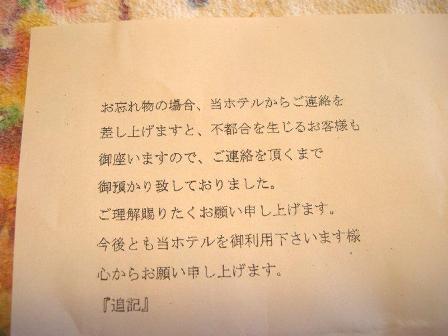 お忘れ物の場合、当ホテルからご連絡を
差し上げますと、不都合を生じるお客様も
御座いますので、ご連絡を頂くまで
御預かり致しておりました。
ご理解賜りたくお願い申し上げます。
今後とも当ホテルを御利用下さいます様
心からお願い申し上げます。
『追記』